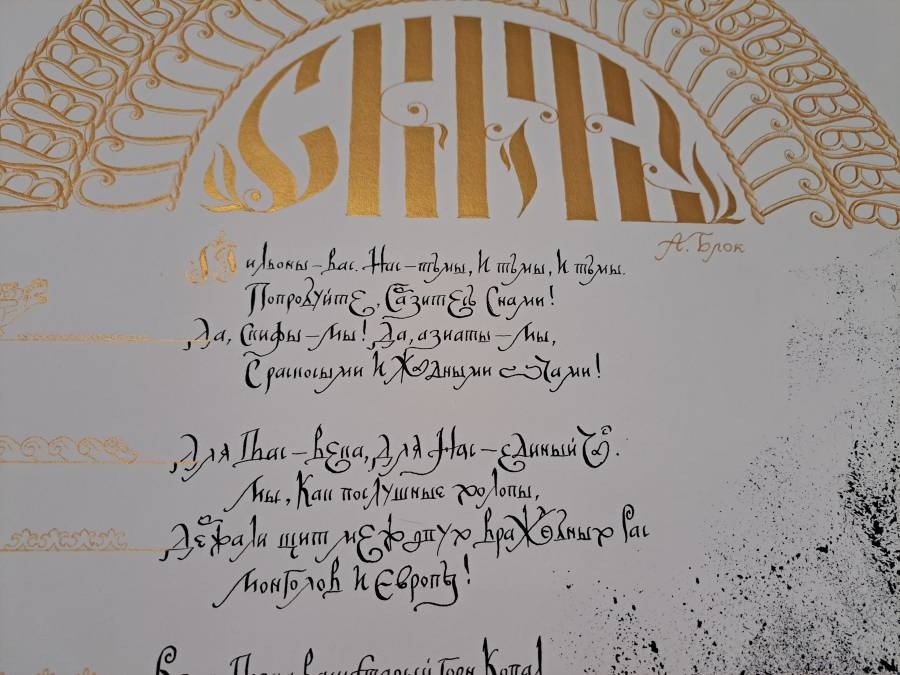 СКИФЫ
А. Блок
Мильоны – вас. Нас – тьмы, и тьмы, и тьмы.
Попробуйте, сразитесь с нами!
Да, скифы – мы! Да, азиаты – мы,
С раскосыми и жадными очами!
Для Вас – века, для Нас – единый час.
Мы, как послушные холопы,
Держали щит меж двух враждебных рас
Монголов и Европы!
Века
старый горн ковал